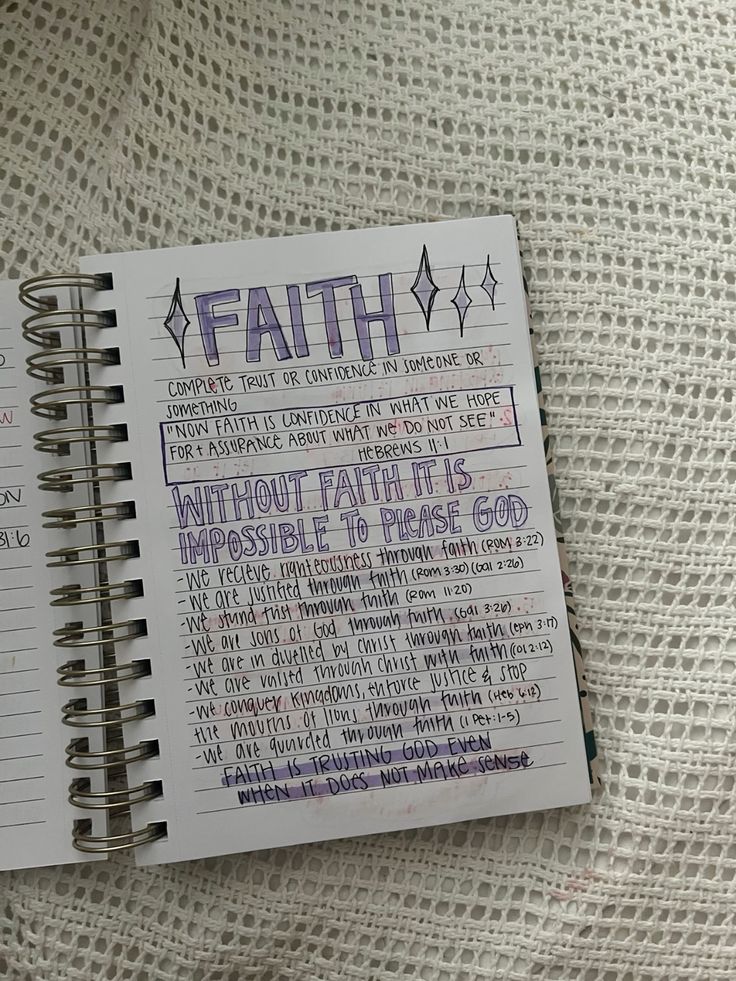 ON
31:6
FAITH
COMPLETE TRUST OR CONFIDENCE IN SOMEONE OR
SOMETHING
"NOW FAITH IS CONFIDENCE IN WHAT WE HOPE
FOR + ASSURANCE ABOUT WHAT WE DO NOT SEE"
HEBREWS 11:1
WITHOUT FAITH IT IS
IMPOSSIBLE TO PLEASE GOD
-We recieve righteousness through faith (ROM 3:22)
-We are justified through faith (Rom 3:30) (Gal 2:26)
-We stand fast through faith (Rom 11:20)
-We are sons of God through faith (Gal 3:26)
-We are in dwelled by Christ through faith (eph 3:17)
-We are raised through Christ with faith (Col 2:12)
-We conquer kingdoms, enforce justice & stop
the mouths of lions through faith (Heb 6:12)
-We are guarded through faith (1 Pet:1-5)
FAITH IS TRUSTING GOD EVEN
WHEN IT DOES NOT MAKE SENSE